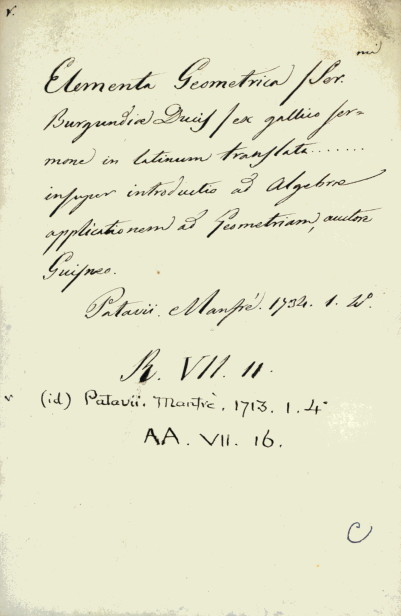 v.
Elementa Geometrica /Ser.
Burgundiæ Ducis / ex gallico ser=
mone in latinum translata.......
insuper introductio ad Algebræ
applicationem ad Geometriam, auctore
Guisneo.
Patavii. Manfré. 1734. 1. 4°.
R. VII. 11.
v (id) Patavii. Manfrè. 1713. 1. 4°
AA. VII. 16.
C